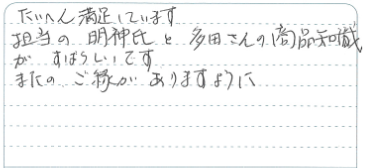 たいへん満足しています
担当の 明神氏と 多田さんの商品知識
が すばらしいです
またの ご縁が ありますように